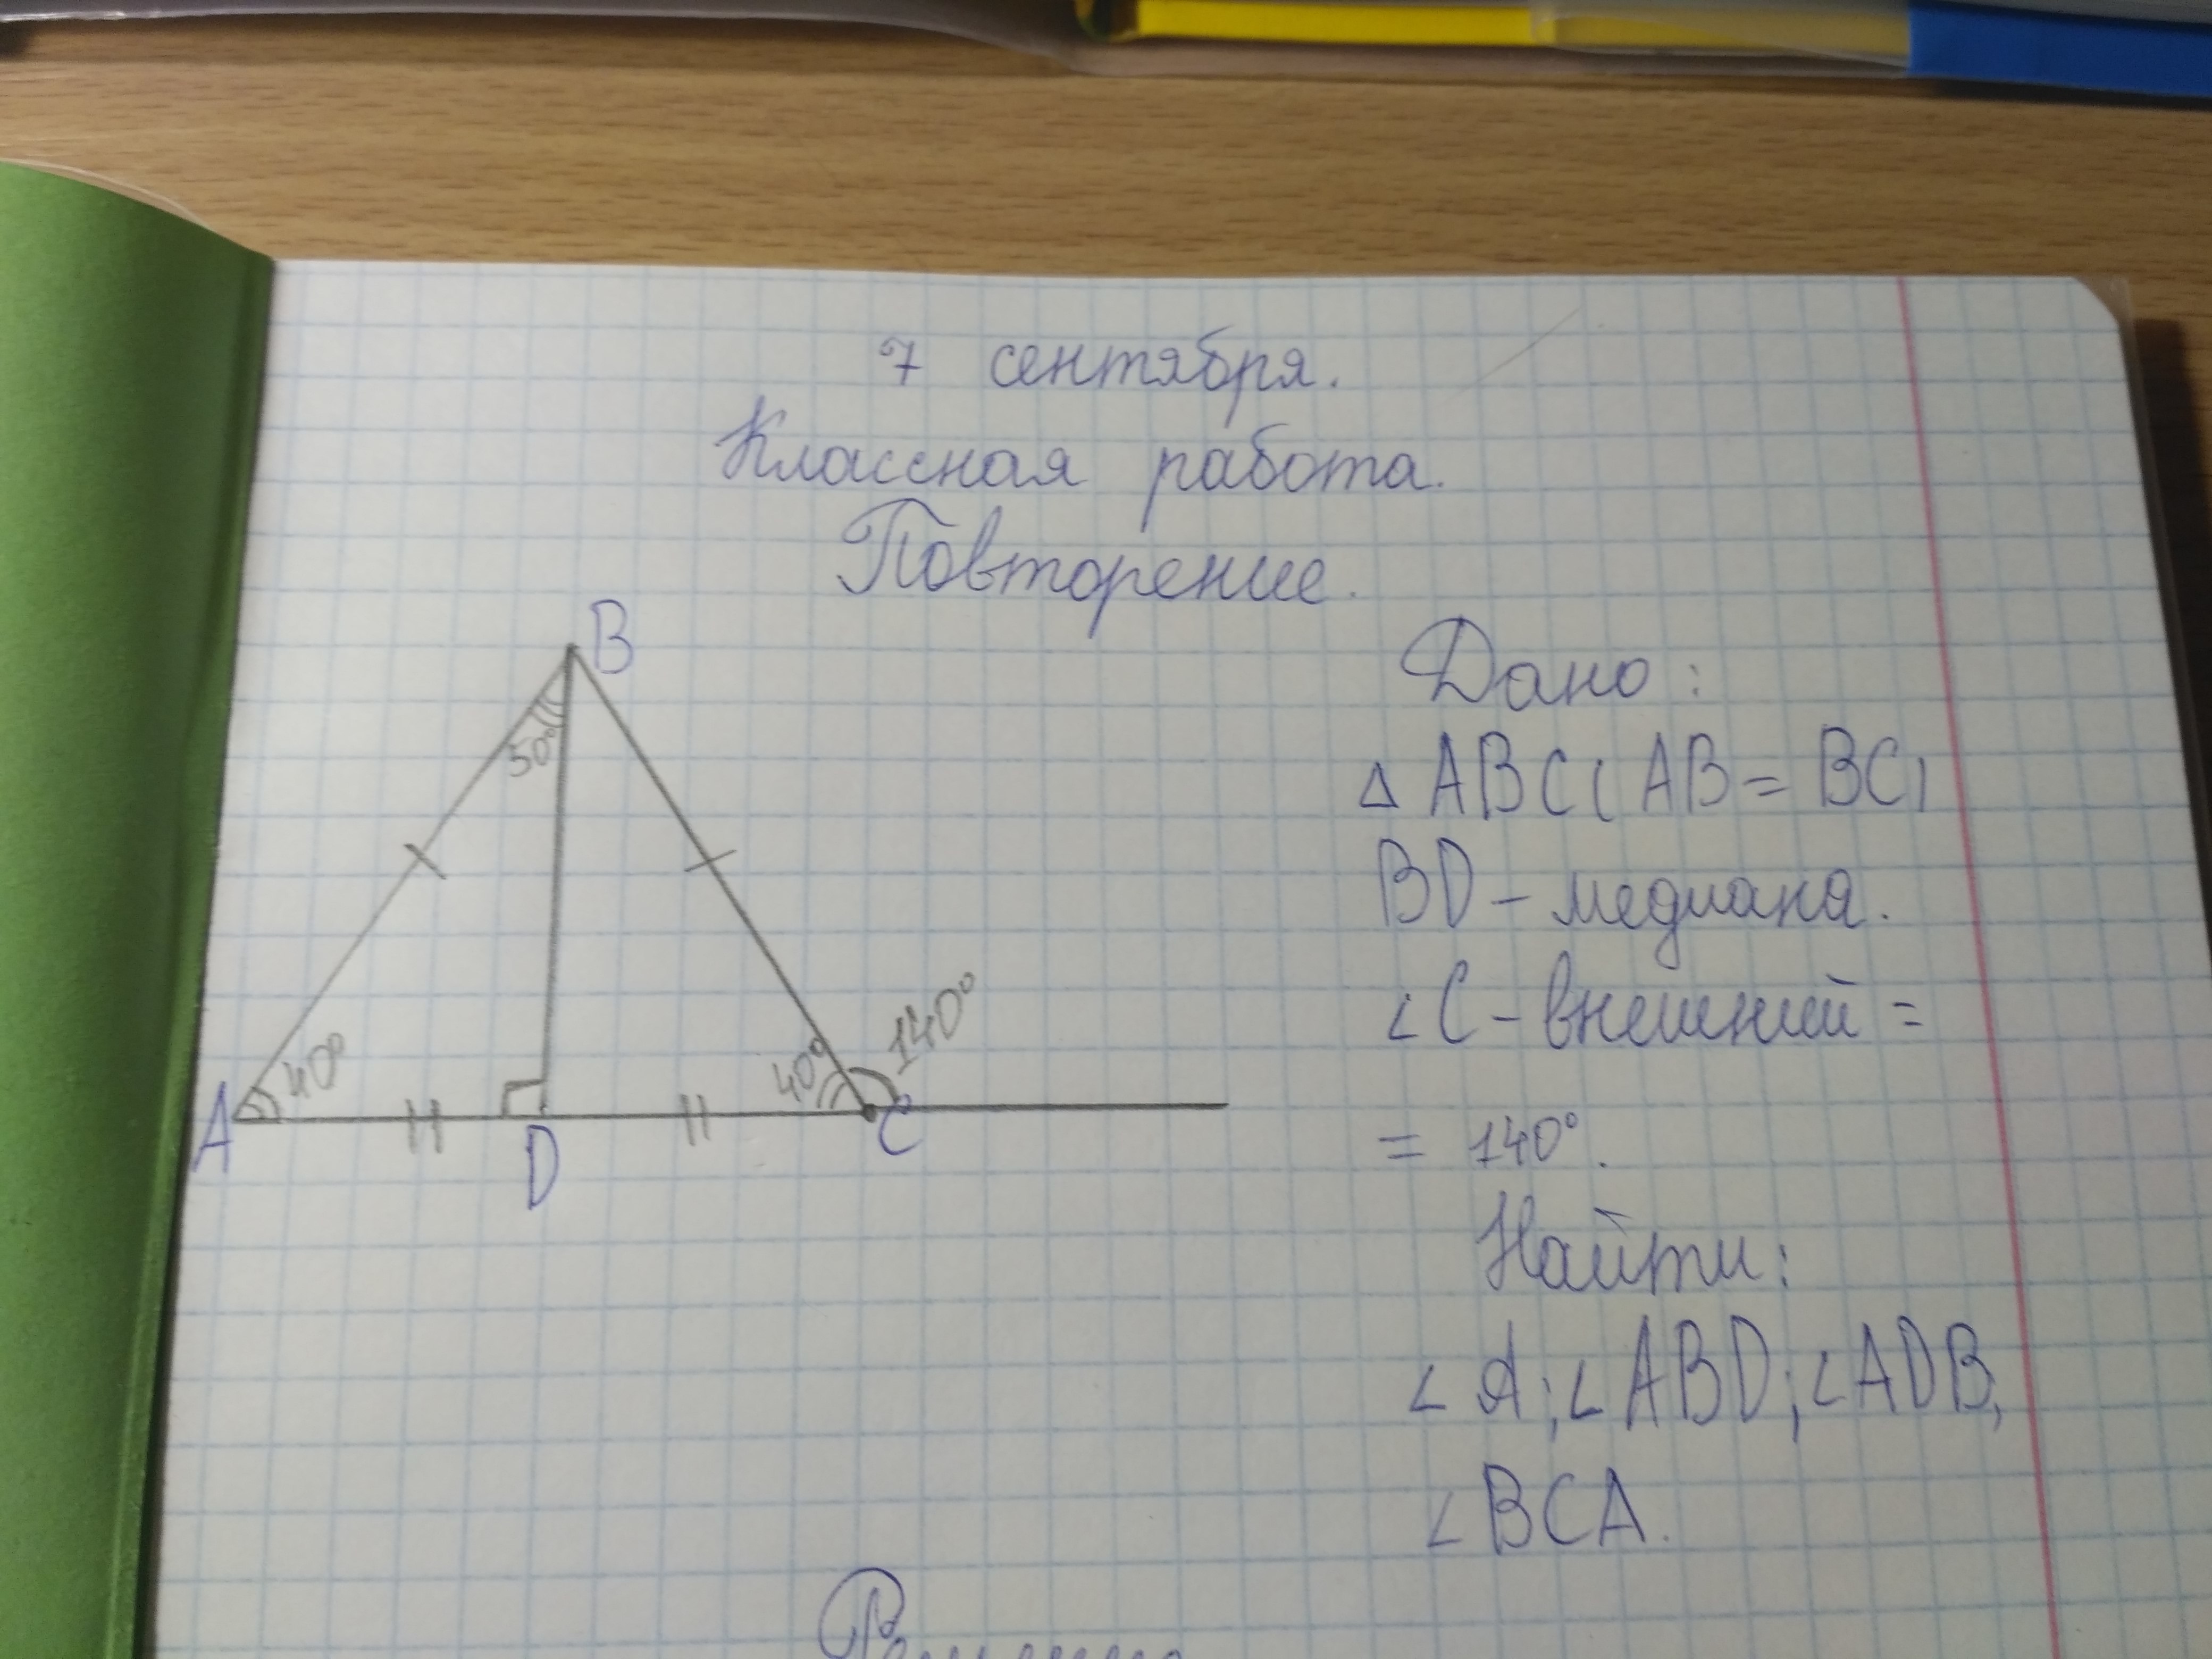 7 сентября.
Классная работа.
Повторение.
B
50°
A
40°
D
40°
140°
C
Дано:
△ ABC (AB = BC)
BD – медиана.
∠C – внешний =
= 140°.
Найти:
∠A; ∠ABD; ∠ADB,
∠BCA.